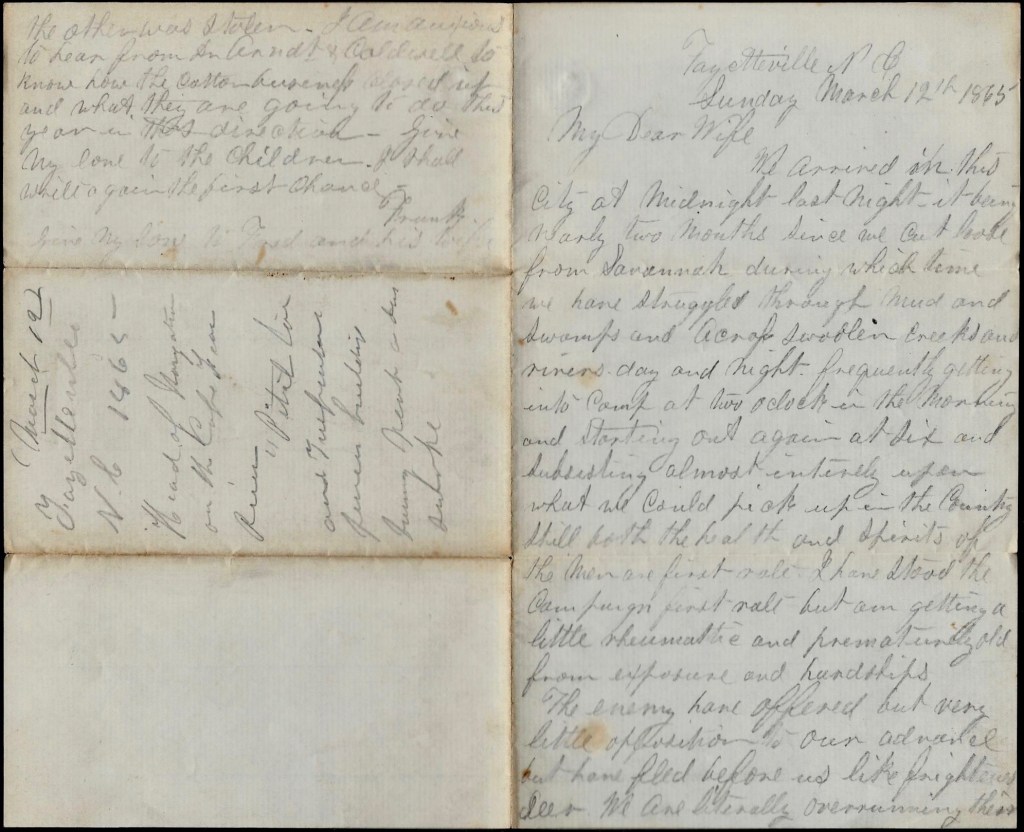 Fayetteville N C
Sunday March 12th 1865
My Dear Wife
We arrived in this
City at Midnight last night - it being
nearly two months since we cut loose
from Savannah during which time
we have struggled through mud and
swamps and across swoolen creeks and
rivers day and night. frequently getting
into Camp at two oclock in the Morning
and starting out again at six and
subsisting almost intirely upon
what we could pick up in the Country
still both the health and spirits of
the men are first rate. I have stood the
Campaign first rate but am getting a
little rheumattic and prematurely old
from exposure and hardships
The enemy have offered but very
little opposition to our advance
but have fled before us like frightened
deer. We are literally overrunning them
the other was stolen - I am anxious
to hear from & Coldwell to
know how the Cotton buseness closed up
and what they are going to do this
year in that direction - Give
My love to the Children. I shall
write again the first chance -
Frank
Give My love to Fred and his wife
March 12
Fayetteville
N. C 1865 -
Head of Navigation
on the Cape Fear
River "
and
building